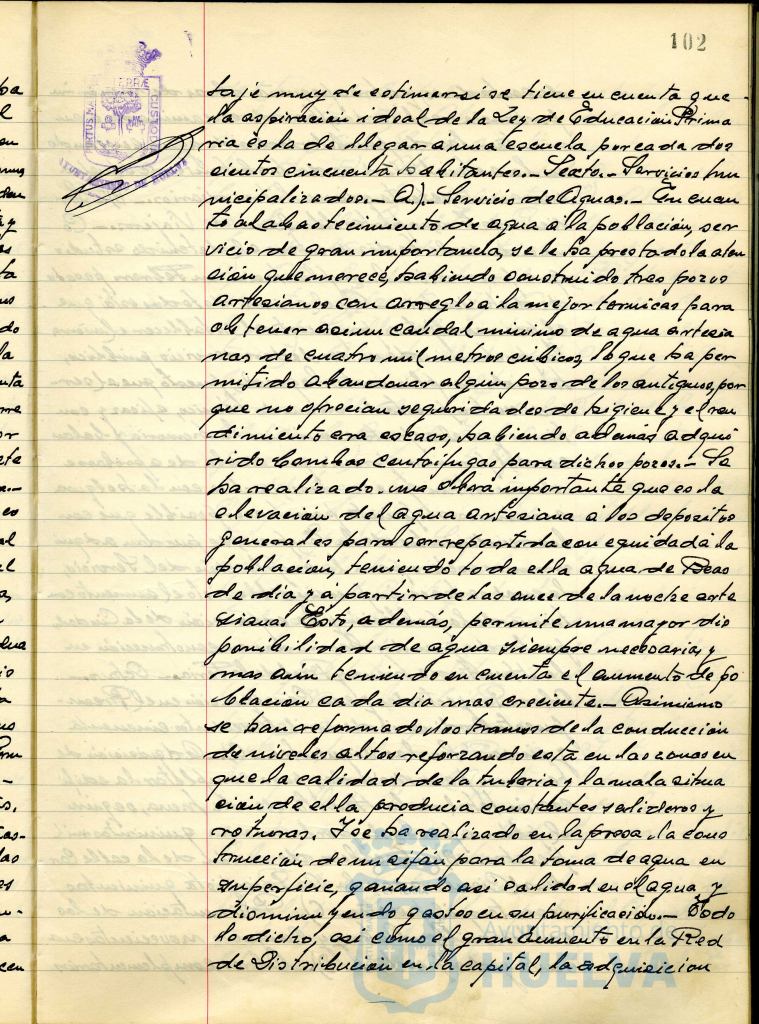 102
taje muy de estimar si se tiene en cuenta que
la aspiración ideal de la Ley de Educación Prima
ria es la de llegar á una escuela por cada dos
cientos cincuenta habitantes.- Sexto.- Servicios mu
nicipalizados.- A).- Servicio de Aguas.- En cuan
to al abastecimiento de agua á la población, ser
vicio de gran importancia, se le ha prestado la aten
ción que merece, habiendo construido tres pozos
artesianos con arreglo á la mejor técnicas para
obtener asi un caudal minimo de agua artesia
nas de cuatro mil metros cúbicos, lo que ha per
mitido abandonar algún pozo de los antiguos, por
que no ofrecian seguridades de higiene y el ren
dimiento era escaso, habiendo además adqui
rido bombas centrífugas para dichos pozos.- Se
ha realizado una obra importante que es la
elevación del agua artesiana á los depositos
generales para ser repartida con equidad á la
población, teniendo toda ella agua de Beas
de dia y á partir de las once de la noche arte
siana. Esto, además, permite una mayor dis
ponibilidad de agua siempre necesaria, y
mas aún teniendo en cuenta el aumento de po
blación cada dia mas creciente.- Asimismo
se han reformado los tramos de la conducción
de niveles altos reforzando esta en las zonas en
que la calidad de la tuberia y la mala situa
ción de ella producia constantes salideros y
roturas. Y se ha realizado en la presa la cons
trucción de un sifón para la toma de agua en
superficie, ganando asi calidad en el agua y
disminuyendo gastos en su purificación.- Todo
lo dicho, asi como el gran aumento en la Red
de Distribución en la capital, la adquisicion
Ayuntamiento de
HUELVA